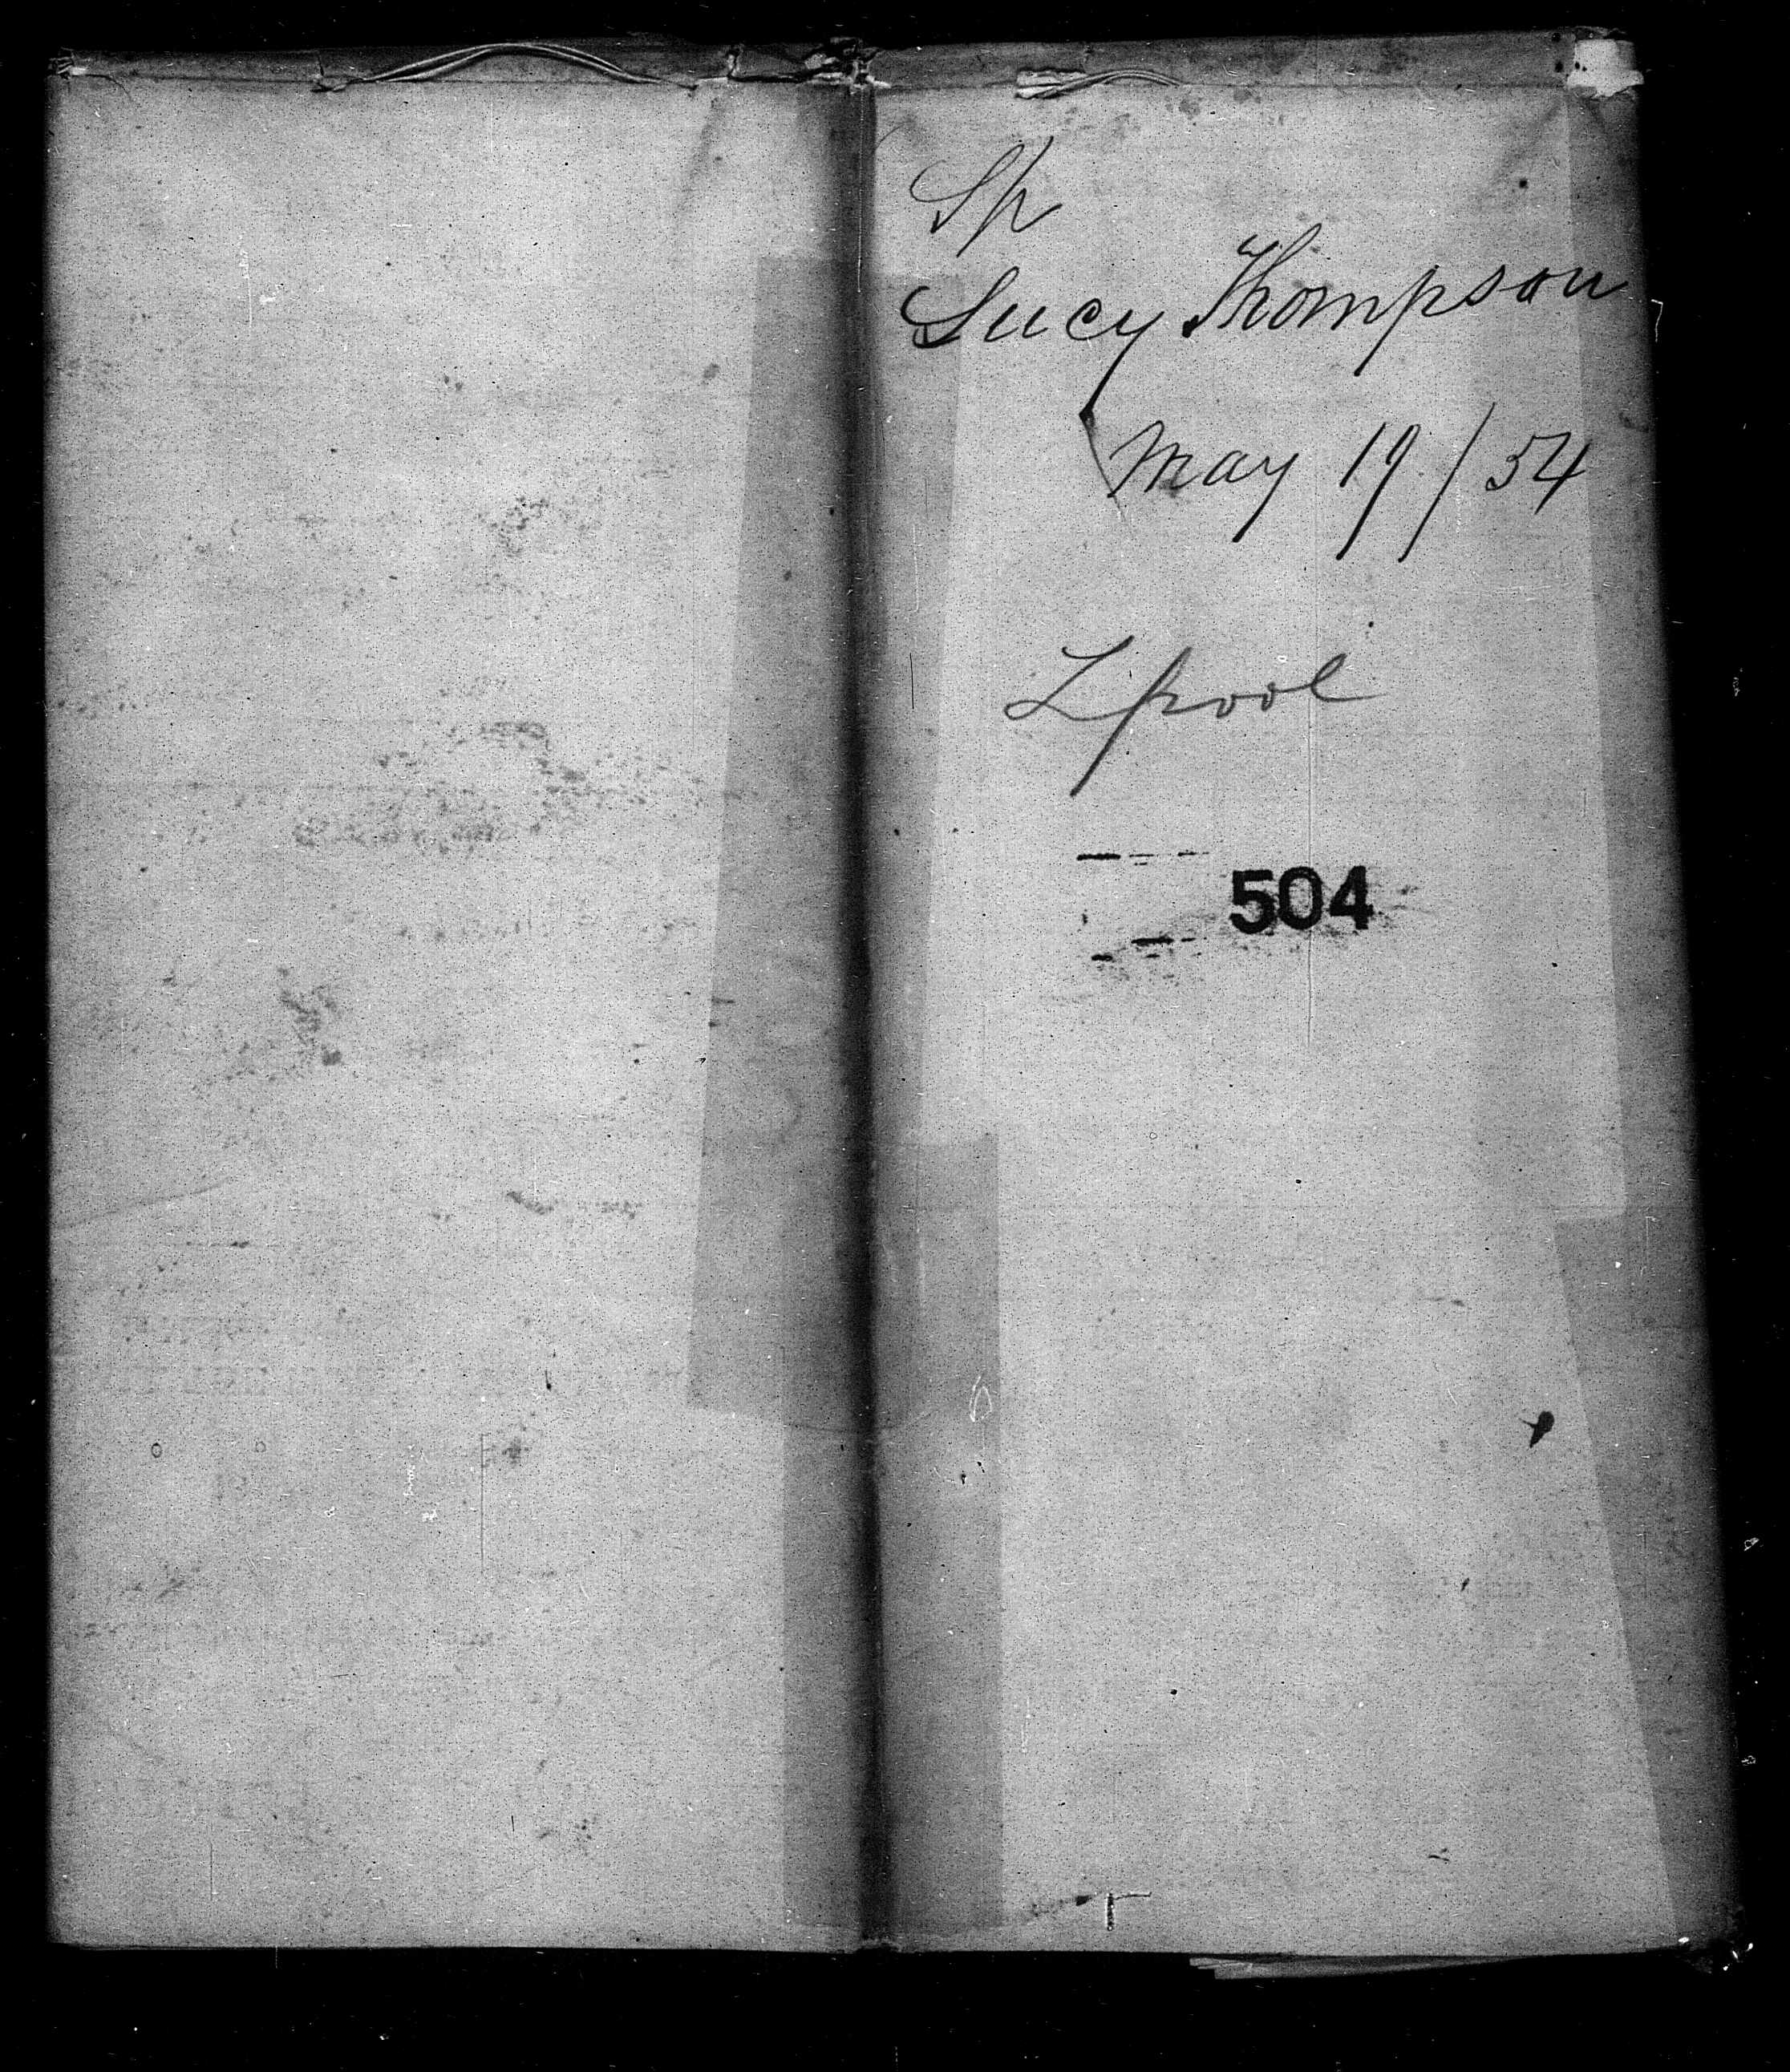 Sp
Lucy Thompson
May 19/54
Lpool
504